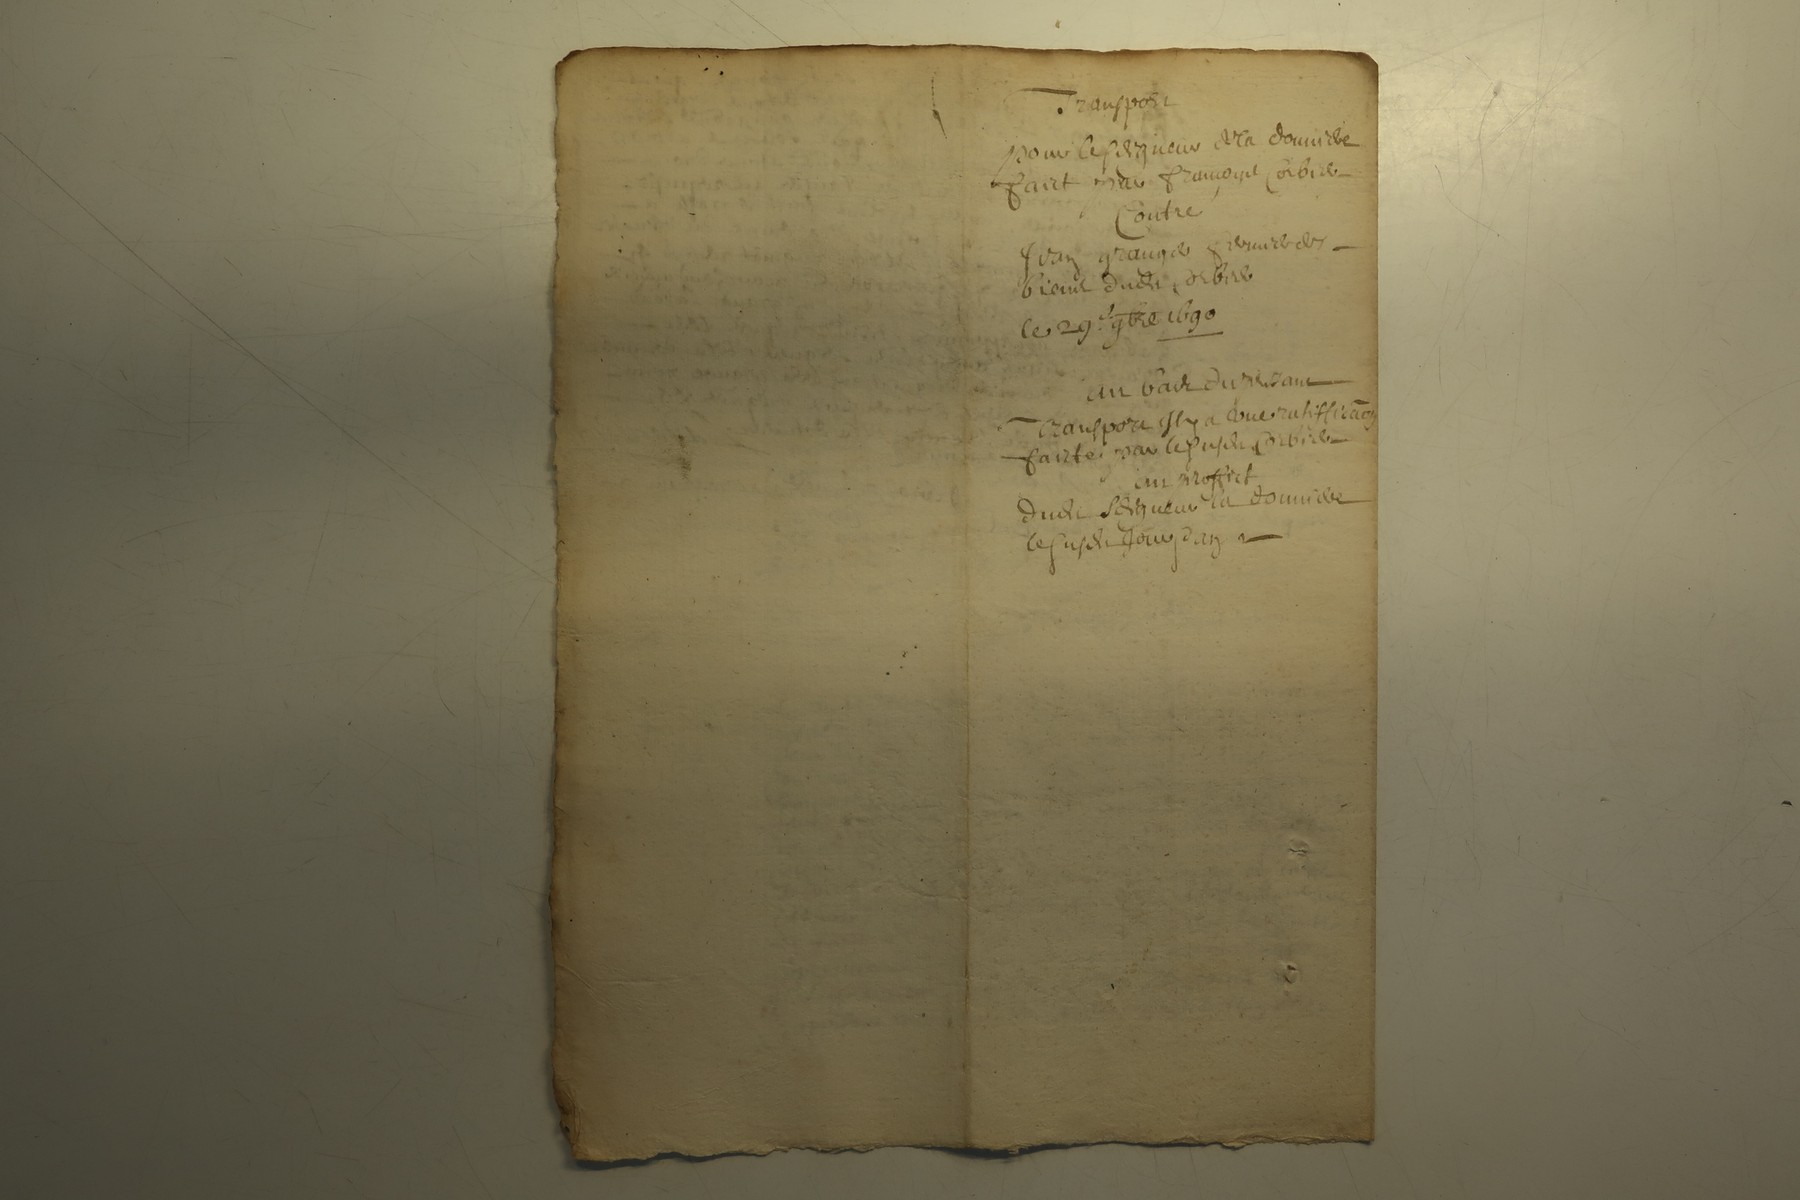 Transport
pour le seigneur de la dominice
faict par françois Corbice
Contre
Jean grange fermier des
biens dudit Corbice
le 29e 9bre 1690
au bas du present
Transport Il y a une ratiffication
faicte par le susdit Corbice
au proffict
dudit seigneur la dominice
le susdit Jour et an